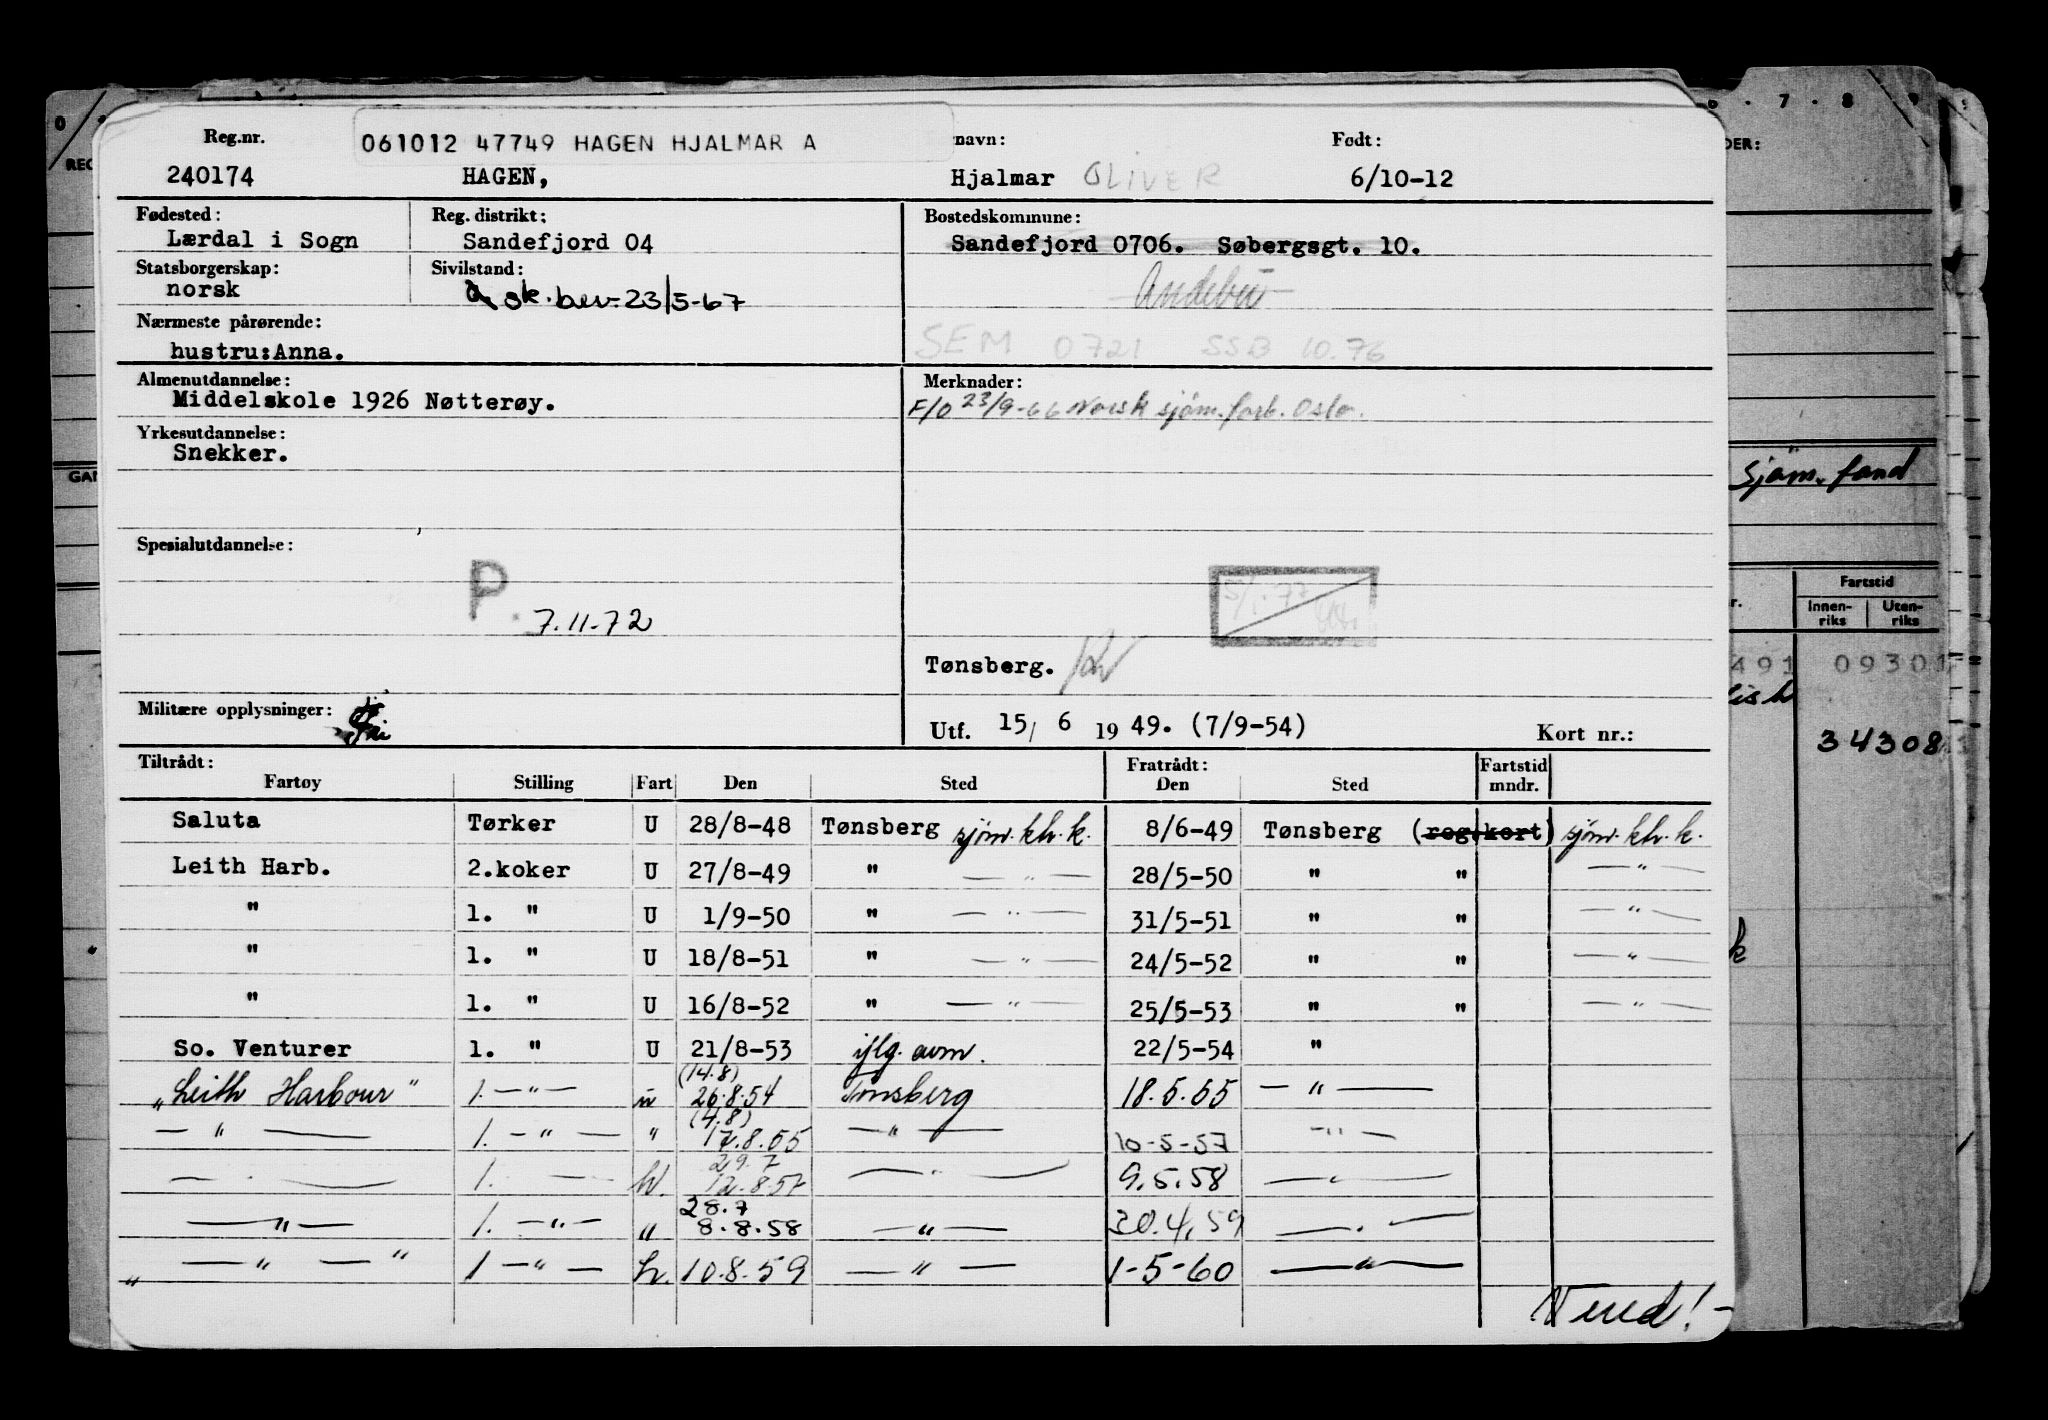 Reg.nr. 061012 47749 HAGEN HJALMAR A navn: Født:
240174 HAGEN, Hjalmar OLIVER 6/10-12
Fødested: Reg. distrikt: Bostedskommune:
Lærdal i Sogn Sandefjord 04 Sandefjord 0706. Søbergsgt. 10.
Statsborgerskap: Sivilstand: Andebu
norsk sk. bev. 23/5-67
Nærmeste pårørende: SEM 0721 SSB 10.76
hustru:Anna.
Almenutdannelse: Merknader:
Middelskole 1926 Nøtterøy. F/O 23/9-66 Norsk sjøm. forb. Oslo.
Yrkesutdannelse:
Snekker.
Spesialutdannelse:
P. 7.11-72
5/1-77
Tønsberg.
Militære opplysninger:
Utf. 15/ 6 1949. (7/9-54) Kort nr.:
Tiltrådt: Fratrådt: Fartstid
Fartøy Stilling Fart Den Sted Den Sted mndr.
Saluta Tørker U 28/8-48 Tønsberg sjøm. kh. k. 8/6-49 Tønsberg (reg.kort) sjøm. kh. k.
Leith Harb. 2.koker U 27/8-49 " — " — 28/5-50 " " — " —
" 1. " U 1/9-50 " — " — 31/5-51 " " — " —
" 1. " U 18/8-51 " — " — 24/5-52 " " — " —
" 1. " U 16/8-52 " — " — 25/5-53 " " — " —
So. Venturer 1. " U 21/8-53 iflg. avm. 22/5-54 "
(14.8)
"Leith Harbour" 1. — " — u 26.8.54 Tønsberg 18.5.55 — " —
(4.8)
— " — 1. — " — " 17.8.55 — " — 10-5-57 — " —
29.7
— " — 1. — 12.8.57 — " — 9.5.58 — " —
28.7
— " — 1. — " — " 8.8.58 — " — 30.4.59 — " —
" — " — " 1 — " — 10.8.59 — " — 1-5-60 — " —
Vend!-
0
REG
GAN
7 . 8 . 9
DER:
Sjøm. fond
Fartstid
r. Innen-riks Uten-riks
491 09301
34308
k